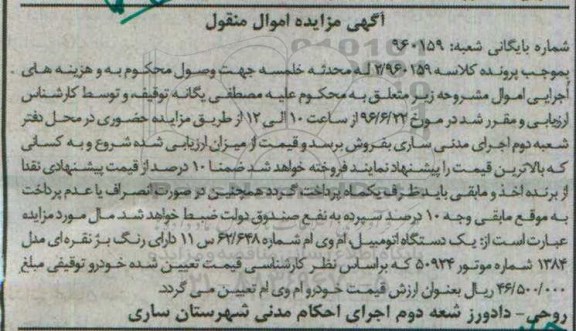 آگهی مزایده اموال منقول
شماره بایگانی شعبه: ۹۶۰۱۵۹
بموجب پرونده کلاسه ۲/۹۶۰۱۵۹ له محدثه خلمسه جهت وصول محکوم به و هزینه های
اجرایی اموال مشروحه زیر متعلق به محکوم علیه مصطفی یگانه توقیف و توسط کارشناس
ارزیابی و مقرر شد در مورخ ۹۶/۶/۲۲ از ساعت ۱۰ الی ۱۲ از طریق مزایده حضوری در محل دفتر
شعبه دوم اجرای مدنی ساری بفروش برسد و قیمت از میزان ارزیابی شده شروع و به کسانی
که بالاترین قیمت را پیشنهاد نمایند فروخته خواهد شد ضمنا ۱۰ درصد از قیمت پیشنهادی نقدا
از برنده اخذ و مابقی باید ظرف یکماه پرداخت گردد همچنین در صورت انصراف یا عدم پرداخت
به موقع مابقی وجه ۱۰ درصد سپرده به نفع صندوق دولت ضبط خواهد شد. مال مورد مزایده
عبارت است از: یک دستگاه اتومبیل ام وی ام شماره ۶۲/۶۴۸ س ۱۱ دارای رنگ بژ نقره ای مدل
۱۳۸۴ شماره موتور ۵۰۹۲۴ که براساس نظر کارشناسی قیمت تعیین شده خودرو توقیفی مبلغ
۴۶/۵۰۰/۰۰۰ ریال بعنوان ارزش قیمت خودرو ام وی ام تعیین می گردد.
روحی - دادورز شعبه دوم اجرای احکام مدنی شهرستان ساری